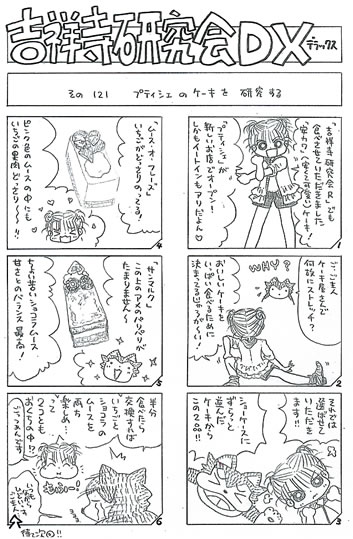 吉祥寺研究会DX
デラックス
その121 プティシェのケーキを研究する
「吉祥寺研究会R」でも
食べさせていただきました
“安カワ”(安くて可愛い)ケーキ!
「プティシェ」が
新しいお店でオープン!
しかもイートインもアリだよん♡
1
WHY?
ケーキ屋さんで
何故にストレッチ?
おいしいケーキを
いっぱい食べるために
決まってるじゃろが〜い!
2
それでは
選ばせて
いただき
ます!!
ショーケースに
ずらっと
並んだ
ケーキから
この2品!!
3
「ムース・オ・フレーズ」
いちごがどっさりのってる!
ピンク色のムースの中にも
いちごの果肉どっさり〜!!
4
「サンマルク」
この上のアメのパリパリが
たまりません〜
ちょい苦いショコラムース
甘さとのバランス最高!
5
半分
食べたら
交換すれば
いちごと
ショコラの
ムースを
両方
楽しめ
って
2コとも
おくちの中!?
ごっつぁんです
6
待て次回!!